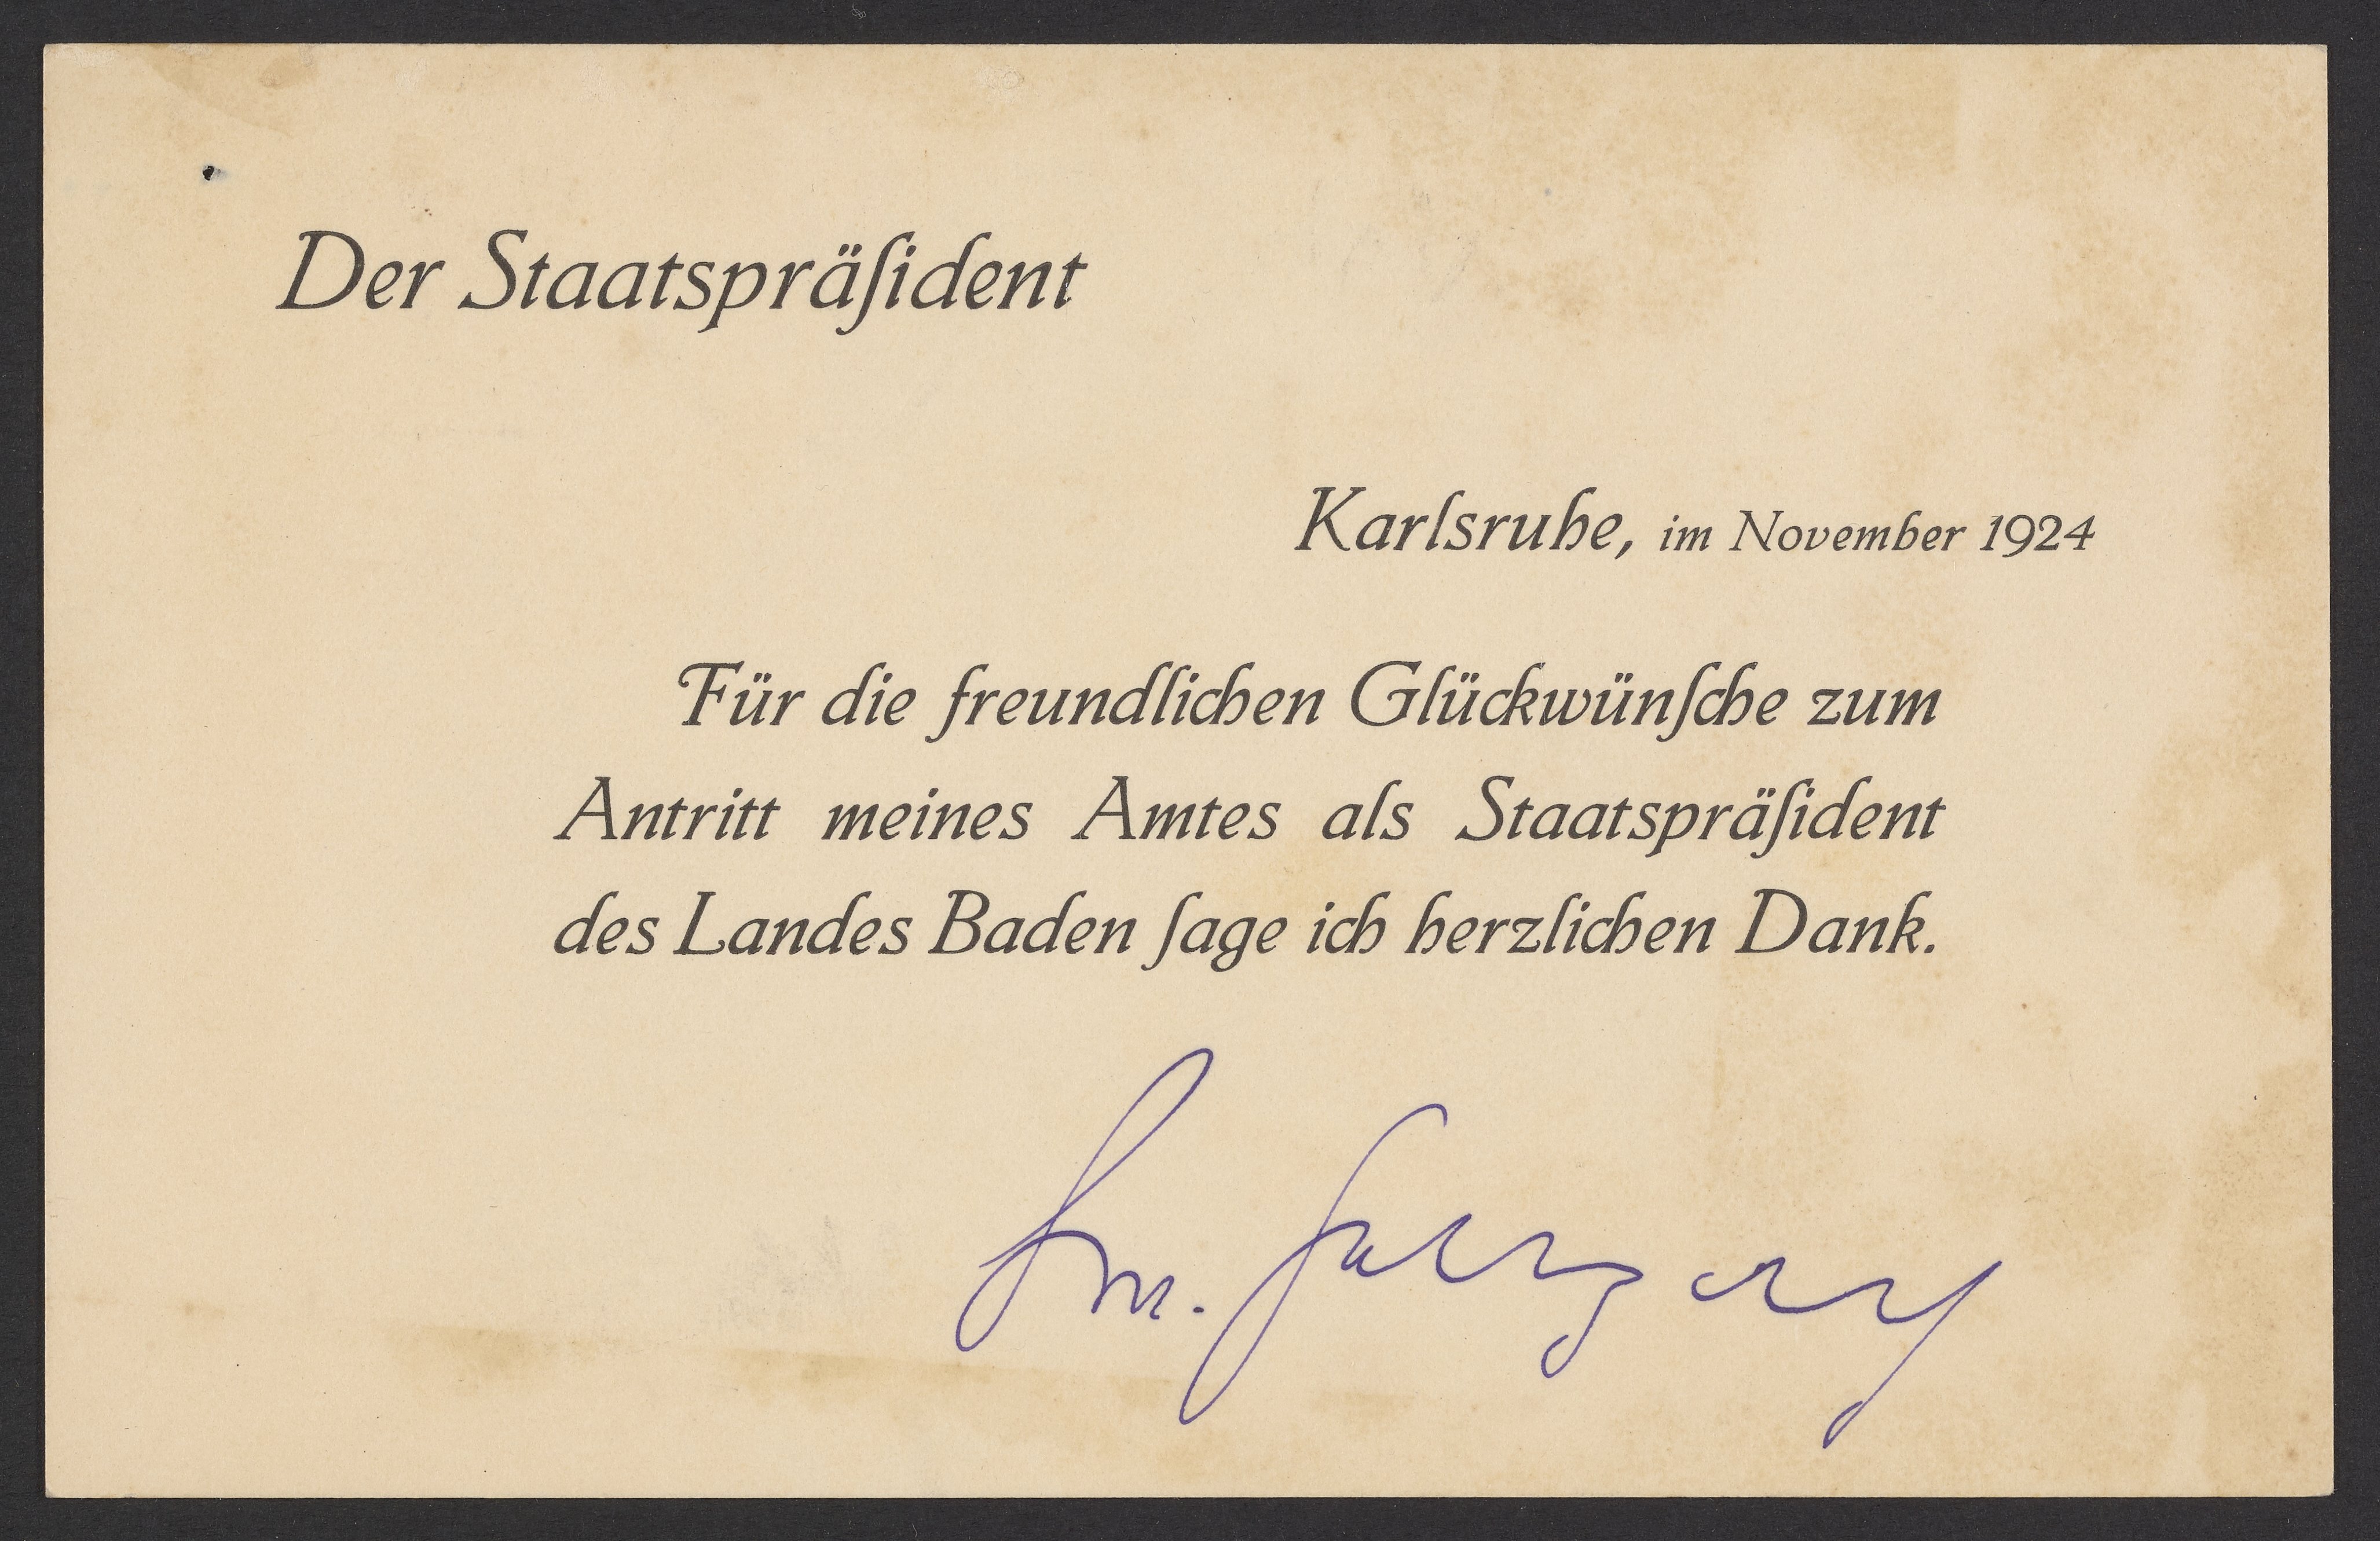 Der Staatspräſident
Karlsruhe, im November 1924
Für die freundlichen Glückwünſche zum
Antritt meines Amtes als Staatspräſident
des Landes Baden ſage ich herzlichen Dank.